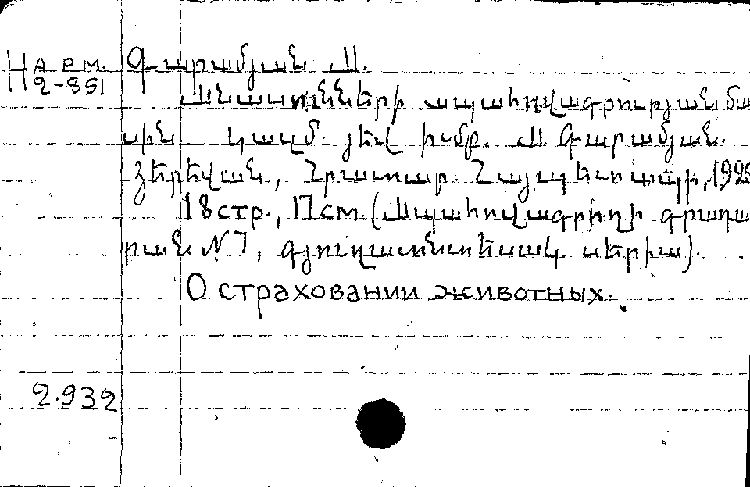 Н арм. Գարամյան Ա.
2-551
Անասունների ապահովագրության մա
սին. Կազմ. յեվ խմբ. Ա. Գարամյան.
Յերեվան, Հրատար. Հայպետապի, 192
18 стр., 17 см. (Ապահովագրողի գրադա
րան № 7, գյուղատնտեսակ սերիա).
О страховании животных.
2.932